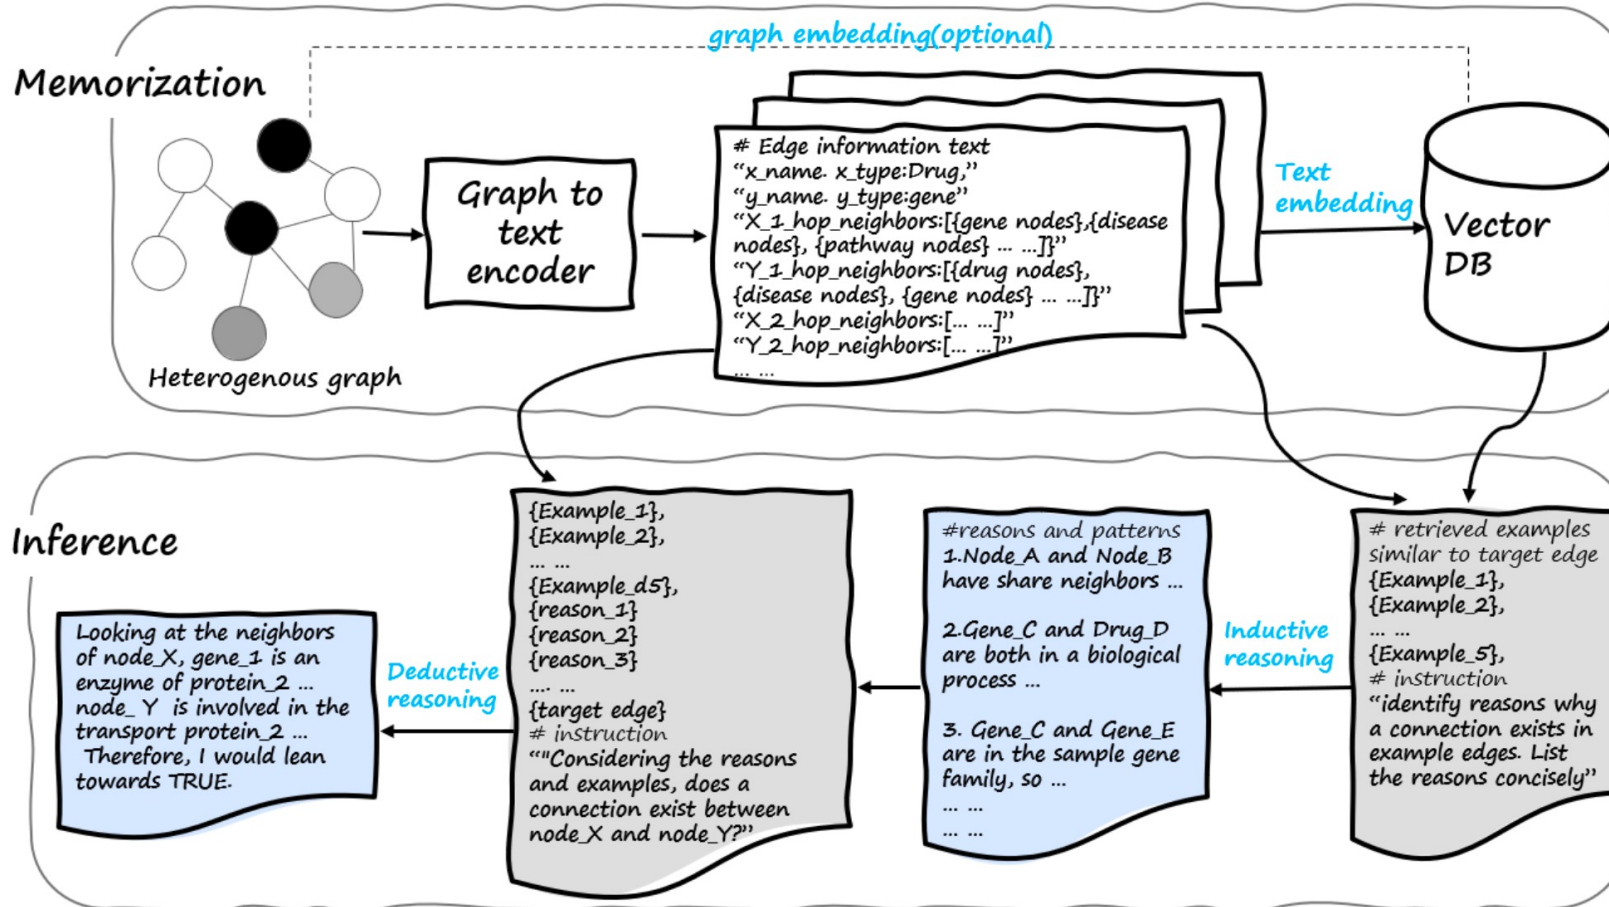 graph embedding(optional)
Memorization
# Edge information text
“x_name. x_type:Drug,”
“y_name. y_type:gene”
“X_1_hop_neighbors:[{gene nodes},{disease
nodes}, {pathway nodes} ... ...]}”
“Y_1_hop_neighbors:[{drug nodes},
{disease nodes}, {gene nodes} ... ...]}”
“X_2_hop_neighbors:[... ...]”
“Y_2_hop_neighbors:[... ...]”
... ...
Graph to
text
encoder
Text
embedding
Vector
DB
Heterogenous graph
Inference
Looking at the neighbors
of node_X, gene_1 is an
enzyme of protein_2 ...
node_ Y is involved in the
transport protein_2 ...
Therefore, I would lean
towards TRUE.
Deductive
reasoning
{Example_1},
{Example_2},
... ...
{Example_d5},
{reason_1}
{reason_2}
{reason_3}
.... ...
{target edge}
# instruction
“"Considering the reasons
and examples, does a
connection exist between
node_X and node_Y?”
#reasons and patterns
1.Node_A and Node_B
have share neighbors ...
2.Gene_C and Drug_D
are both in a biological
process ...
3. Gene_C and Gene_E
are in the sample gene
family, so ...
... ...
... ...
Inductive
reasoning
# retrieved examples
similar to target edge
{Example_1},
{Example_2},
... ...
{Example_5},
# instruction
“identify reasons why
a connection exists in
example edges. List
the reasons concisely”